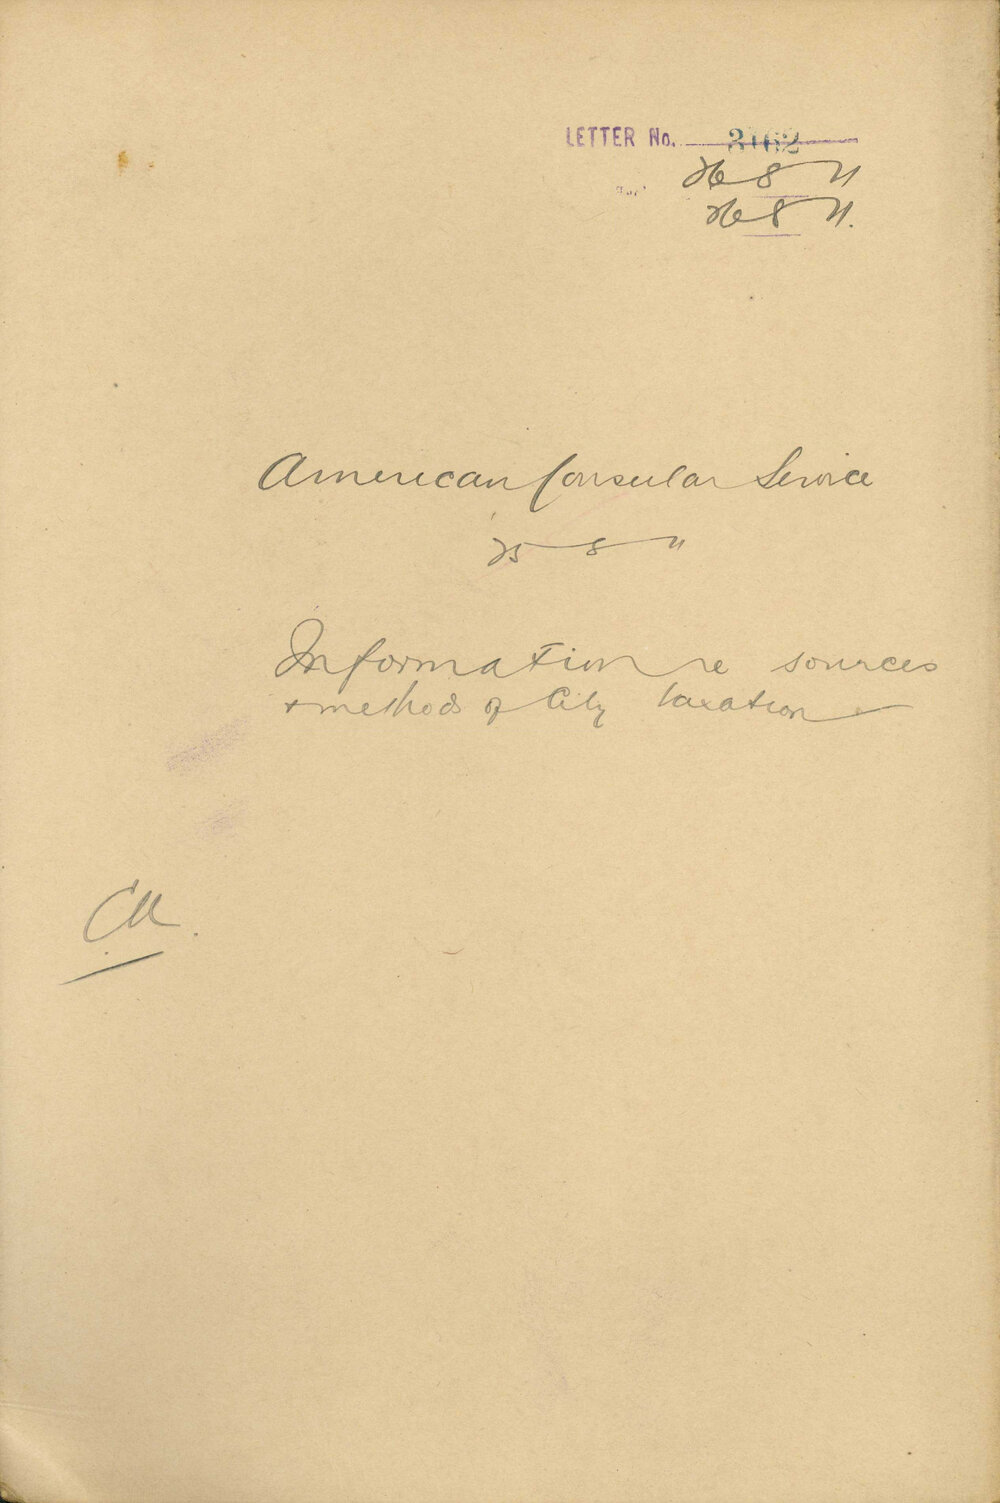 LETTER No. 3162
26 8 11
26 8 11.
American Consular Service
25 8 11
Information re sources
+ methods of City taxation